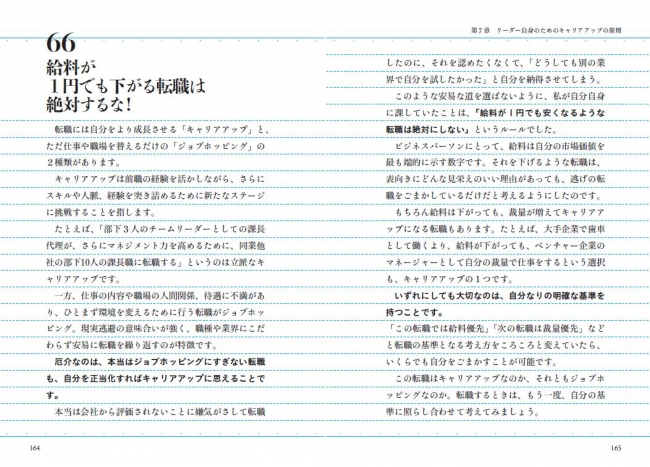 66
給料が
1円でも下がる転職は
絶対するな!
転職には自分をより成長させる「キャリアアップ」と、
ただ仕事や職場を替えるだけの「ジョブホッピング」の
2種類があります。
キャリアアップは前職の経験を活かしながら、さらに
スキルや人脈、経験を突き詰めるために新たなステージ
に挑戦することを指します。
たとえば、「部下3人のチームリーダーとしての課長
代理が、さらにマネジメント力を高めるために、同業他
社の部下10人の課長職に転職する」というのは立派なキ
ャリアアップです。
一方、仕事の内容や職場の人間関係、待遇に不満があ
り、ひとまず環境を変えるために行う転職がジョブホッ
ピング。現実逃避の意味合いが強く、職種や業界にこだ
わらず安易に転職を繰り返すのが特徴です。
厄介なのは、本当はジョブホッピングにすぎない転職
も、自分を正当化すればキャリアアップに思えることで
す。
本当は会社から評価されないことに嫌気がさして転職
164
第7章 リーダー自身のためのキャリアアップの原則
したのに、それを認めたくなくて、「どうしても別の業
界で自分を試したかった」と自分を納得させてしまう。
このような安易な道を選ばないように、私が自分自身
に課していたことは、「給料が1円でも安くなるような
転職は絶対にしない」というルールでした。
ビジネスパーソンにとって、給料は自分の市場価値を
最も端的に示す数字です。それを下げるような転職は、
表向きにどんな見栄えのいい理由があっても、逃げの転
職をごまかしているだけだと考えるようにしたのです。
もちろん給料は下がっても、裁量が増えてキャリアア
ップになる転職もあります。たとえば、大手企業で歯車
として働くより、給料が下がっても、ベンチャー企業の
マネージャーとして自分の裁量で仕事をするという選択
も、キャリアアップの1つです。
いずれにしても大切なのは、自分なりの明確な基準を
持つことです。
「この転職では給料優先」「次の転職は裁量優先」など
と転職の基準となる考え方をころころと変えていたら、
いくらでも自分をごまかすことが可能です。
この転職はキャリアアップなのか、それともジョブホ
ッピングなのか。転職するときは、もう一度、自分の基
準に照らし合わせて考えてみましょう。
165